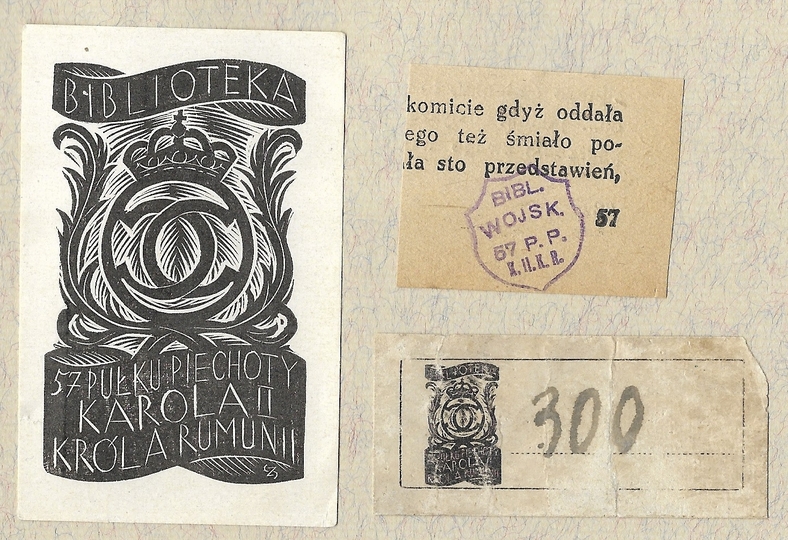 BIBLIOTEKA
57 PUŁKU PIECHOTY
KAROLA II
KRÓLA RUMUNII
komicie gdyż oddała
ego też śmiało po-
ła sto przedstawień,
57
BIBL.
WOJSK.
57 P. P.
K. II. K. R.
BIBLIOTEKA
57 PUŁKU PIECHOTY
KAROLA II
KRÓLA RUMUNII
300